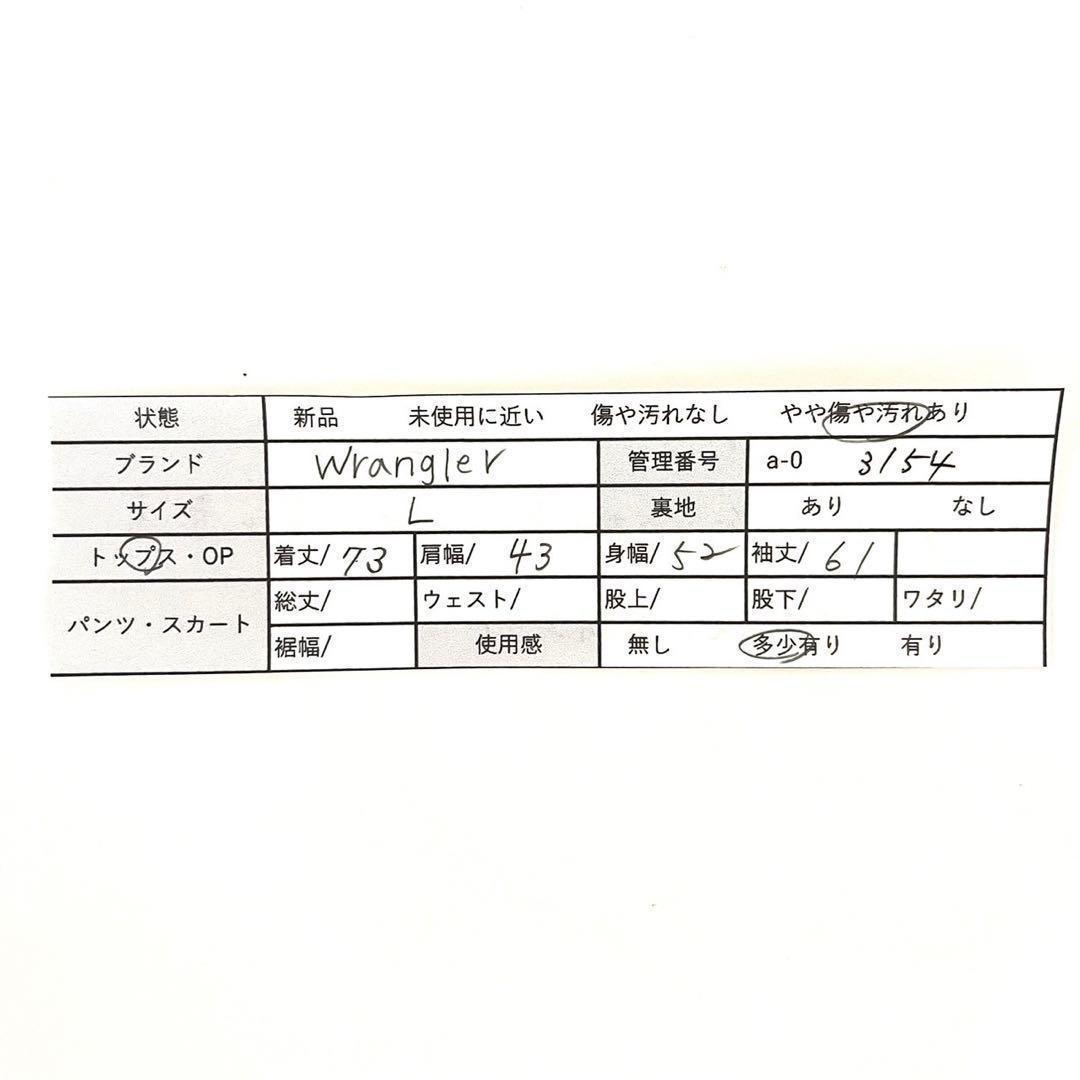 状態 新品 未使用に近い 傷や汚れなし やや傷や汚れあり
ブランド Wrangler 管理番号 a-0 3154
サイズ L 裏地 あり なし
トップス・OP 着丈/ 73 肩幅/ 43 身幅/ 52 袖丈/ 61
パンツ・スカート 総丈/ ウェスト/ 股上/ 股下/ ワタリ/
裾幅/ 使用感 無し 多少有り 有り